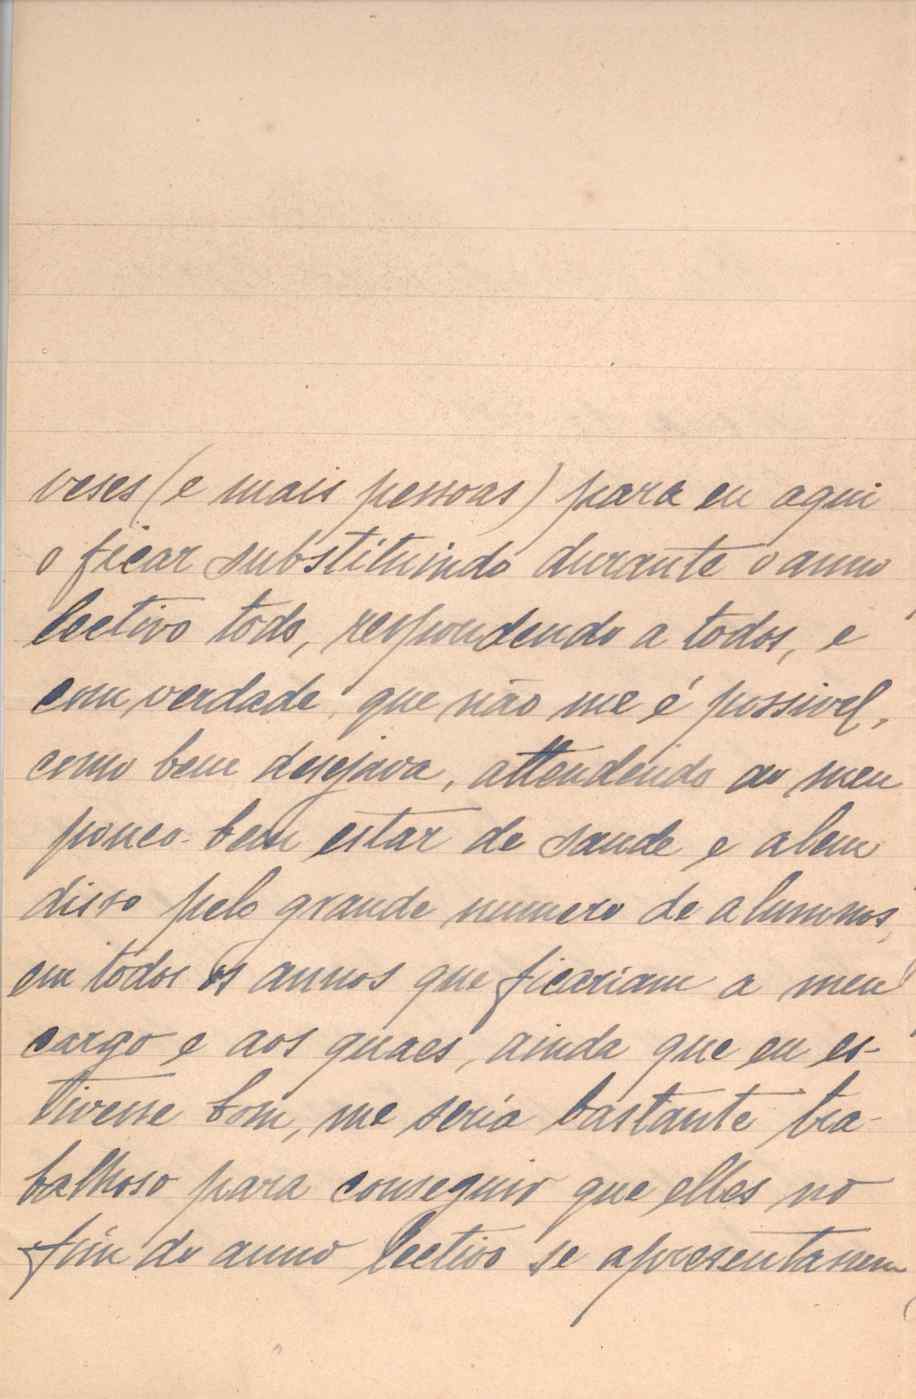 veses (e mais pessoas) para eu aqui
o ficar substituindo durante o anno
lectivo todo, respondendo a todos, e
com verdade, que não me é possivel,
como bem desejava, attendendo ao meu
pouco bem estar de saude e alem
disso pelo grande numero de alumnos,
em todos os annos que ficariam a meu
cargo e aos quaes, ainda que eu es-
tivesse bom, me seria bastante tra-
balhoso para conseguir que elles no
fim do anno lectivo se apresentassem